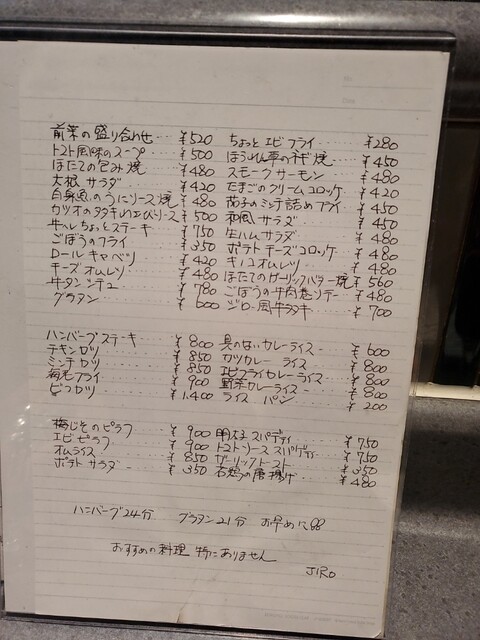 前菜の盛り合わせ ¥520 ちょっとエビフライ ¥280
トマト風味のスープ ¥500 ほうれん草のネギ焼 ¥450
ほたての包み焼 ¥480 スモークサーモン ¥480
大根サラダ ¥420 たまごのクリームコロッケ ¥420
白身魚のうにソース焼 ¥480 茄子のミンチ詰めフライ ¥450
カツオのタタキのエびソース ¥500 和風サラダ ¥450
牛ヘレちょっとステーキ ¥750 生ハムサラダ ¥480
ごぼうのフライ ¥350 ポテトチーズコロッケ ¥480
ロールキャベツ ¥420 キノコオムレツ ¥480
チーズオムレツ ¥480 ほたてのガーリックバター焼 ¥560
牛タンシチュー ¥780 ごぼうの牛肉巻ソテー ¥480
グラタン ¥600 ジロー風牛タタキ ¥700
ハンバーグステーキ ¥800 具のないカレーライス ¥600
チキンカツ ¥850 カツカレーライス ¥800
ミンチカツ ¥850 エビフライカレーライス ¥800
海老フライ ¥900 野菜カレーライス ¥800
ビフカツ ¥1.400 ライス パン ¥200
梅じそのピラフ ¥900 明太子スパゲティ ¥750
エビピラフ ¥900 トマトソーススパゲティ ¥750
オムライス ¥850 ガーリックトースト ¥350
ポテトサラダ ¥350 若鶏の唐揚げ ¥480
ハンバーグ24分 グラタン21分 お早めに
おすすめの料理 特にありません
JIRO